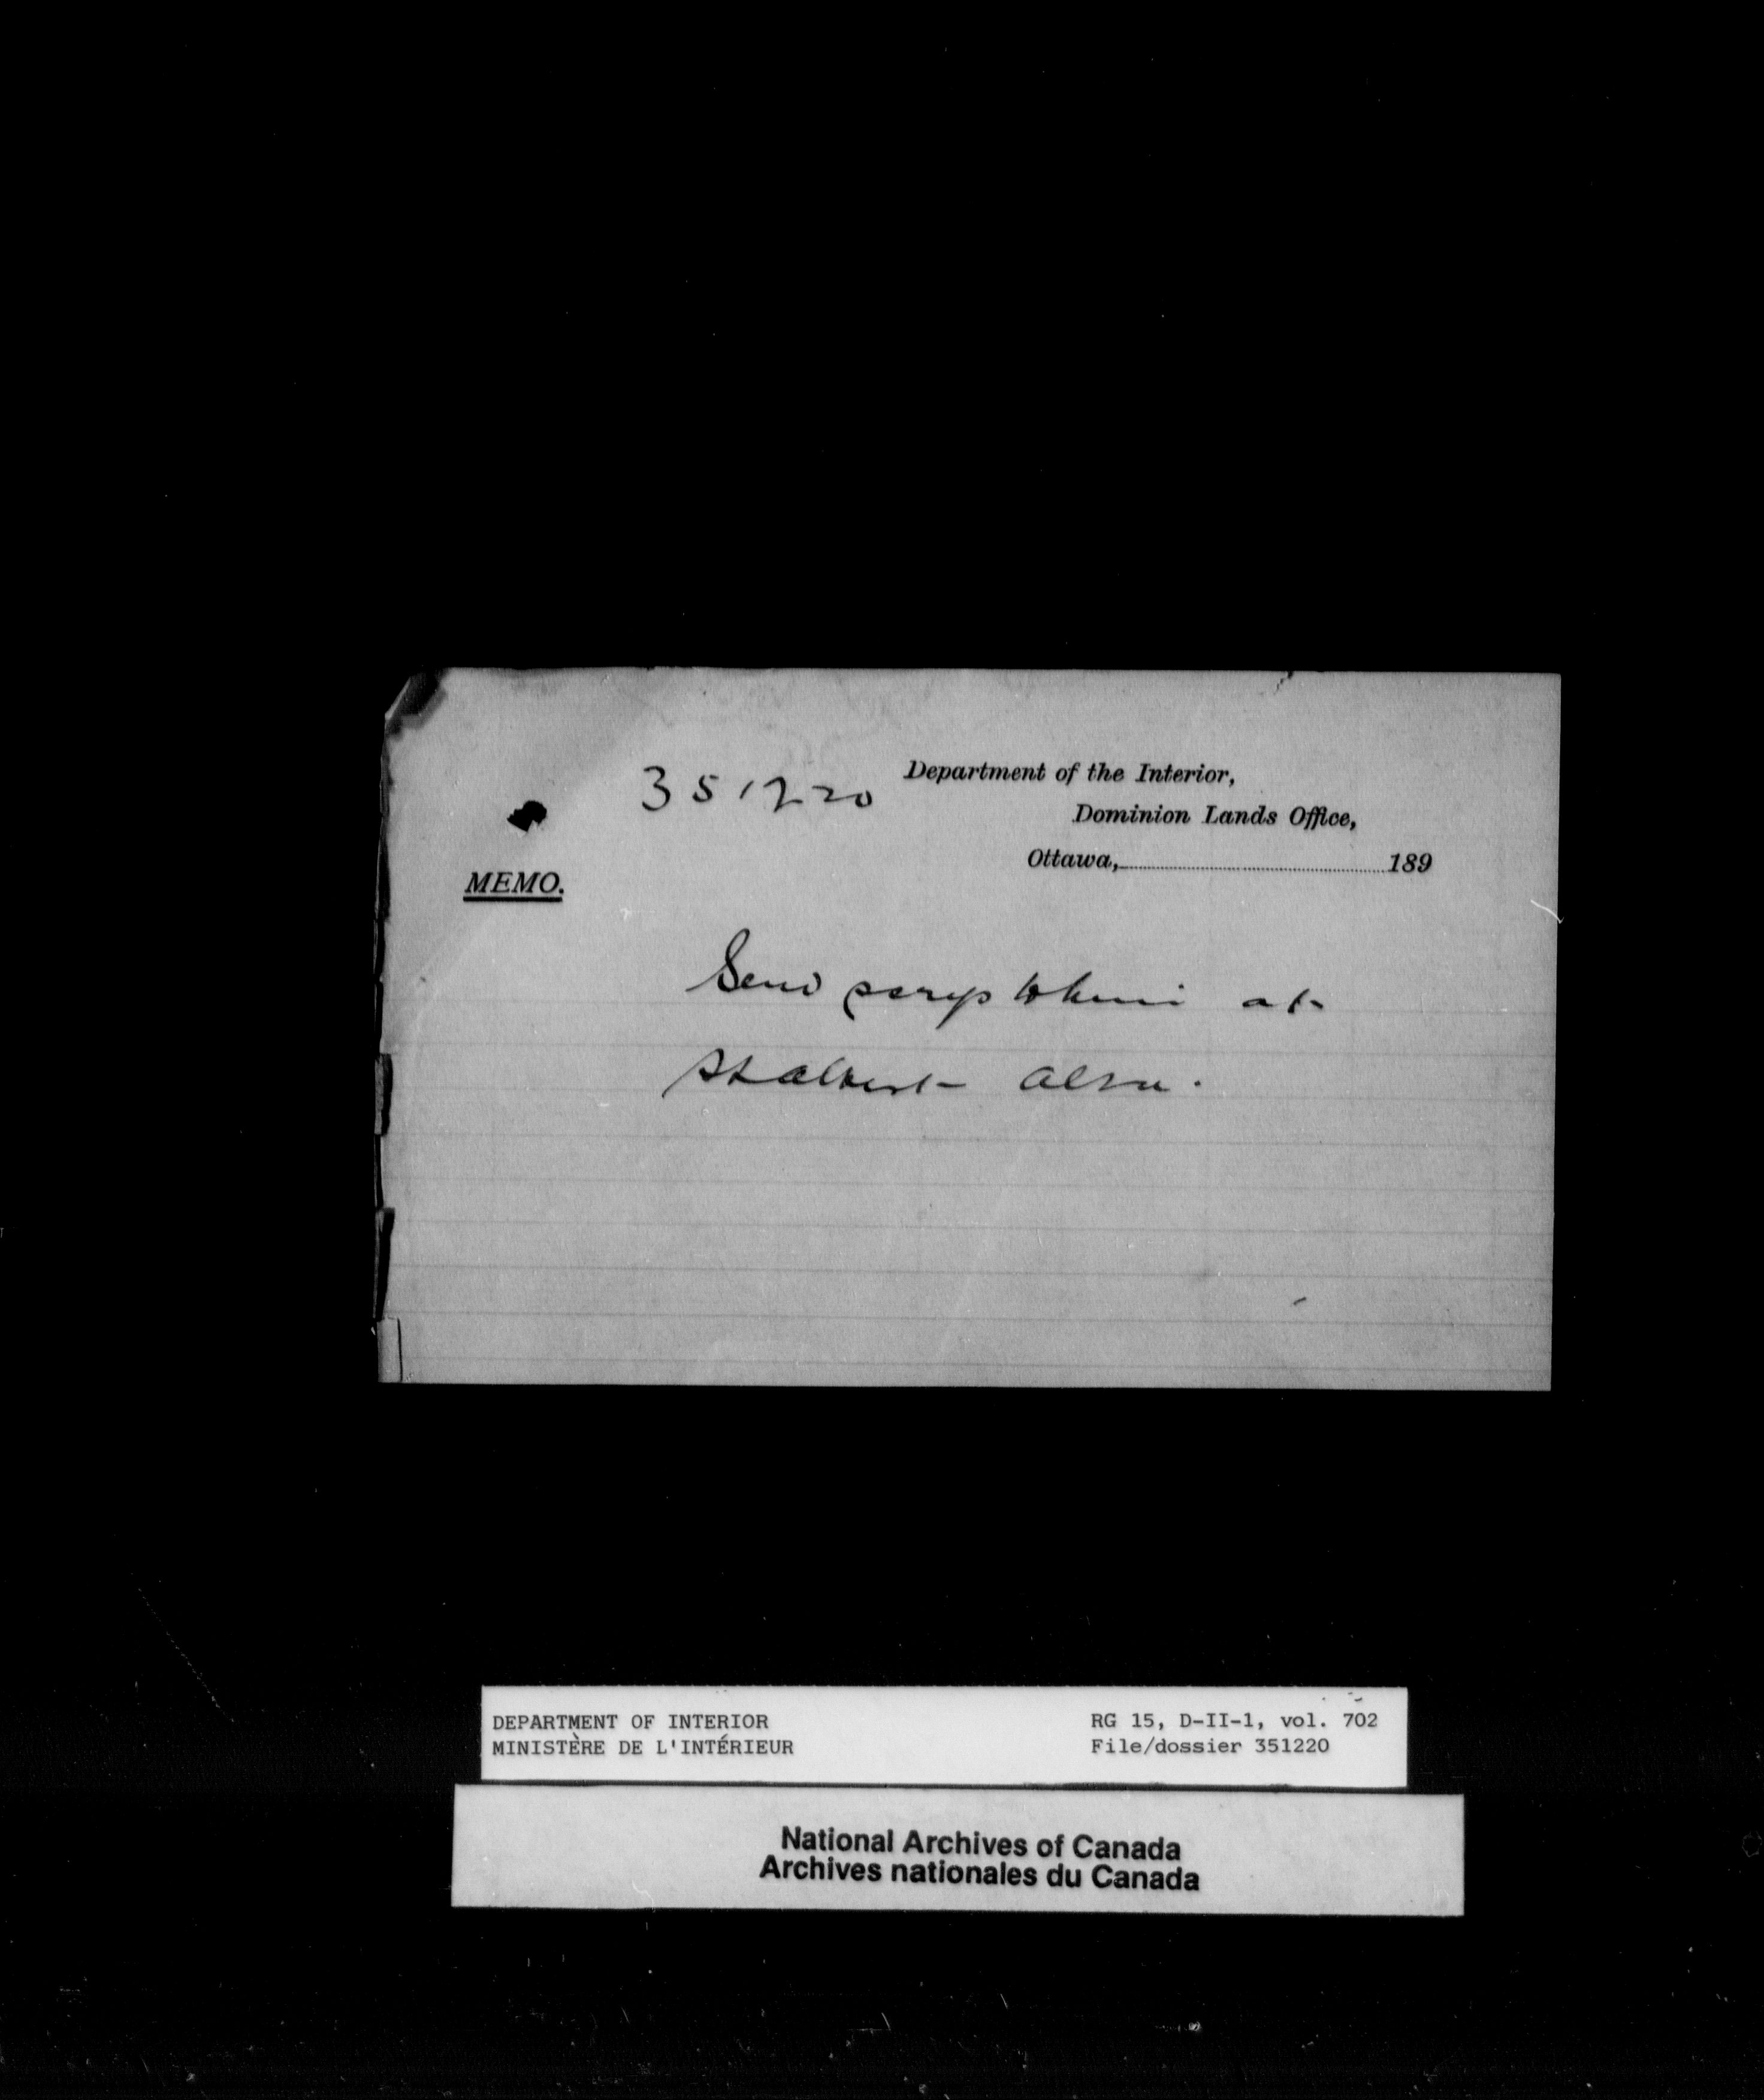 351220
Department of the Interior,
Dominion Lands Office,
Ottawa, 189
MEMO.
Send scrip to him at
St Albert Alta.
DEPARTMENT OF INTERIOR
MINISTÈRE DE L'INTÉRIEUR
RG 15, D-II-1, vol. 702
File/dossier 351220
National Archives of Canada
Archives nationales du Canada